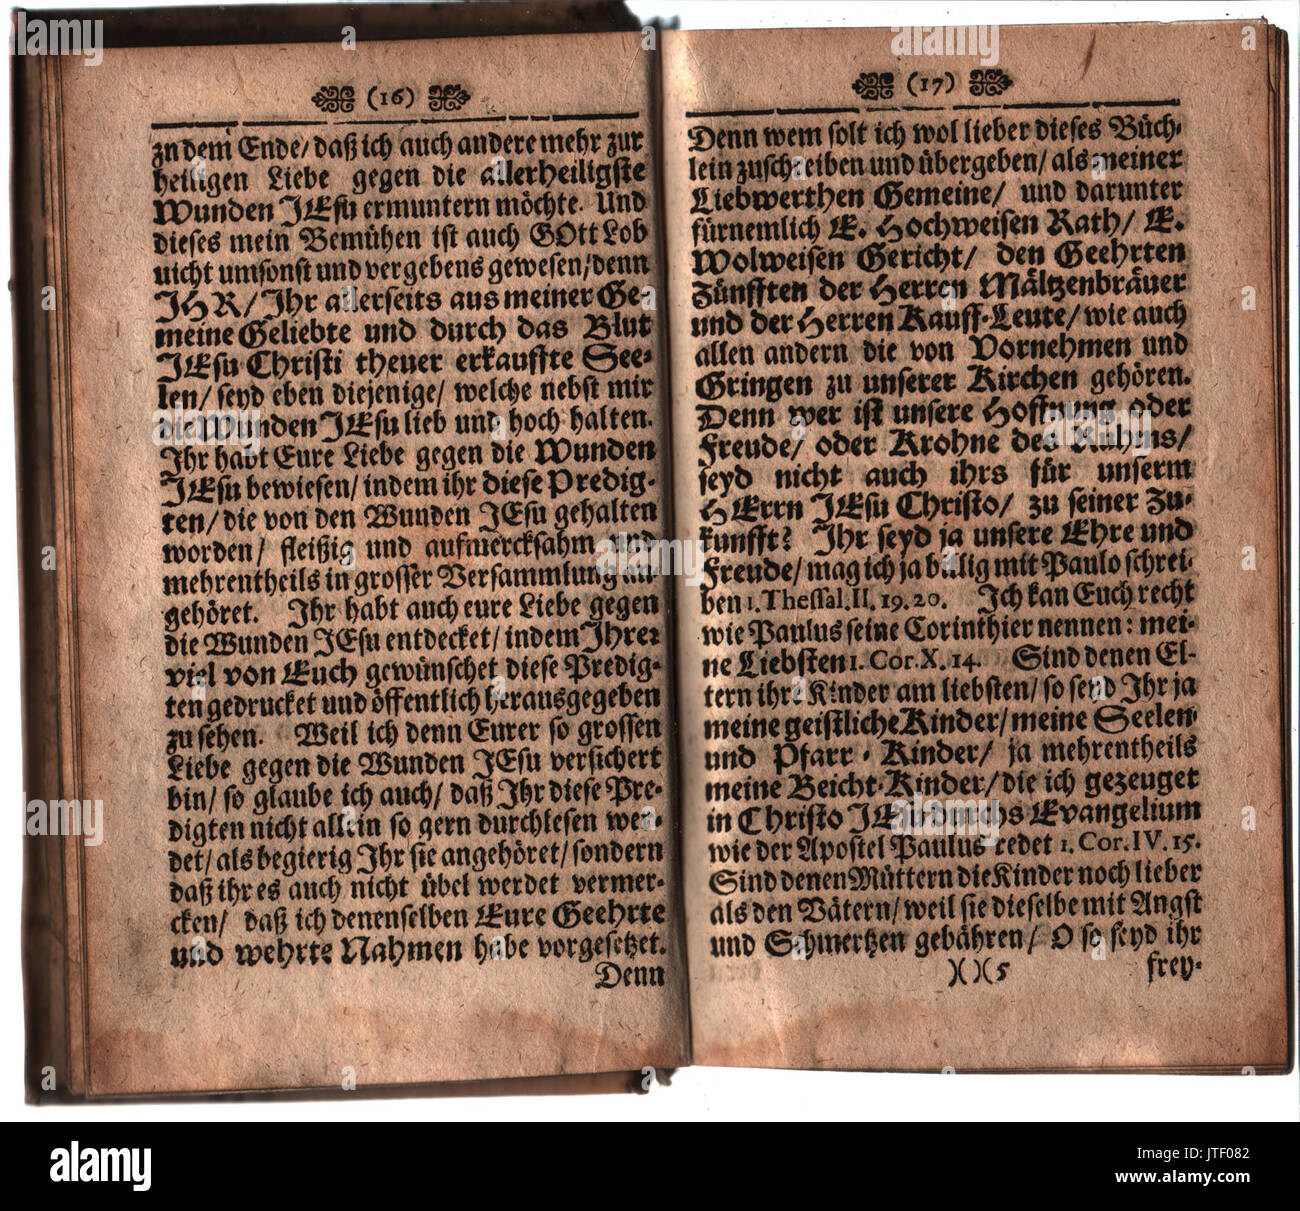 (16)
zu dem Ende/ daß ich auch andere mehr zur
heiligen Liebe gegen die allerheiligste
Wunden JEsu ermuntern möchte. Und
dieses mein Bemühen ist auch GOtt Lob
nicht umsonst und vergebens gewesen/ denn
JHR/ Ihr allerseits aus meiner Ge-
meine Geliebte und durch das Blut
JEsu Christi theuer erkauffte See-
len/ seyd eben diejenige/ welche nebst mir
die Wunden JEsu lieb und hoch halten.
Ihr habt Eure Liebe gegen die Wunden
JEsu bewiesen/ indem ihr diese Predig-
ten/ die von den Wunden JEsu gehalten
worden/ fleißig und aufmercksahm und
mehrentheils in grosser Versammlung an-
gehöret. Ihr habt auch eure Liebe gegen
die Wunden JEsu entdecket/ indem Ihrer
viel von Euch gewünschet diese Predig-
ten gedrucket und öffentlich herausgegeben
zu sehen. Weil ich denn Eurer so grossen
Liebe gegen die Wunden JEsu versichert
bin/ so glaube ich auch/ daß Ihr diese Pre-
digten nicht allein so gern durchlesen wer-
det/ als begierig Ihr sie angehöret/ sondern
daß ihr es auch nicht übel werdet vermer-
cken/ daß ich denenselben Eure Geehrte
und wehrte Nahmen habe vorgesetzet.
Denn
(17)
Denn wem solt ich wol lieber dieses Büch-
lein zuschreiben und übergeben/ als meiner
Liebwerthen Gemeine/ und darunter
fürnemlich E. Hochweisen Rath/ E.
Wolweisen Gericht/ den Geehrten
Zünfften der Herren Mältzenbräuer
und der Herren Kauff-Leute/ wie auch
allen andern die von Vornehmen und
Gringen zu unserer Kirchen gehören.
Denn wer ist unsere Hoffnung oder
Freude/ oder Krohne des Ruhms/
seyd nicht auch ihrs für unserm
HErrn JEsu Christo/ zu seiner Zu-
kunfft? Ihr seyd ja unsere Ehre und
Freude/ mag ich ja billig mit Paulo schrei-
ben 1. Thessal. II. 19. 20. Ich kan Euch recht
wie Paulus seine Corinthier nennen: mei-
ne Liebsten 1. Cor. X. 14. Sind denen El-
tern ihre Kinder am liebsten/ so seyd Ihr ja
meine geistliche Kinder/ meine Seelen-
und Pfarr-Kinder/ ja mehrentheils
meine Beicht-Kinder/ die ich gezeuget
in Christo JEsu durchs Evangelium
wie der Apostel Paulus redet 1. Cor. IV. 15.
Sind denen Müttern die Kinder noch lieber
als den Vätern/ weil sie dieselbe mit Angst
und Schmertzen gebähren/ O so seyd ihr
)( )( 5 frey-
alamy
Image ID: JTF082
www.alamy.com